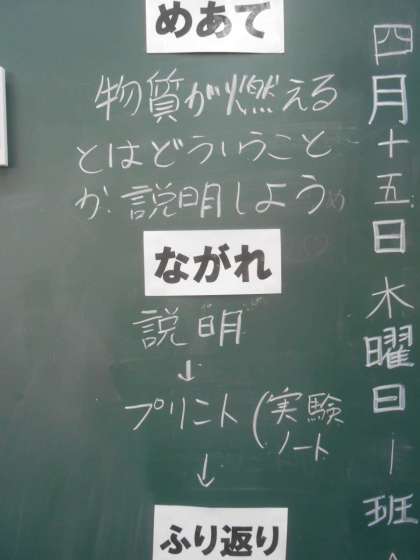 四月十五日木曜日一班
めあて
物質が燃える
とはどういうこと
か説明しよう
ながれ
説明
↓
プリント(実験
ノート
↓
ふり返り